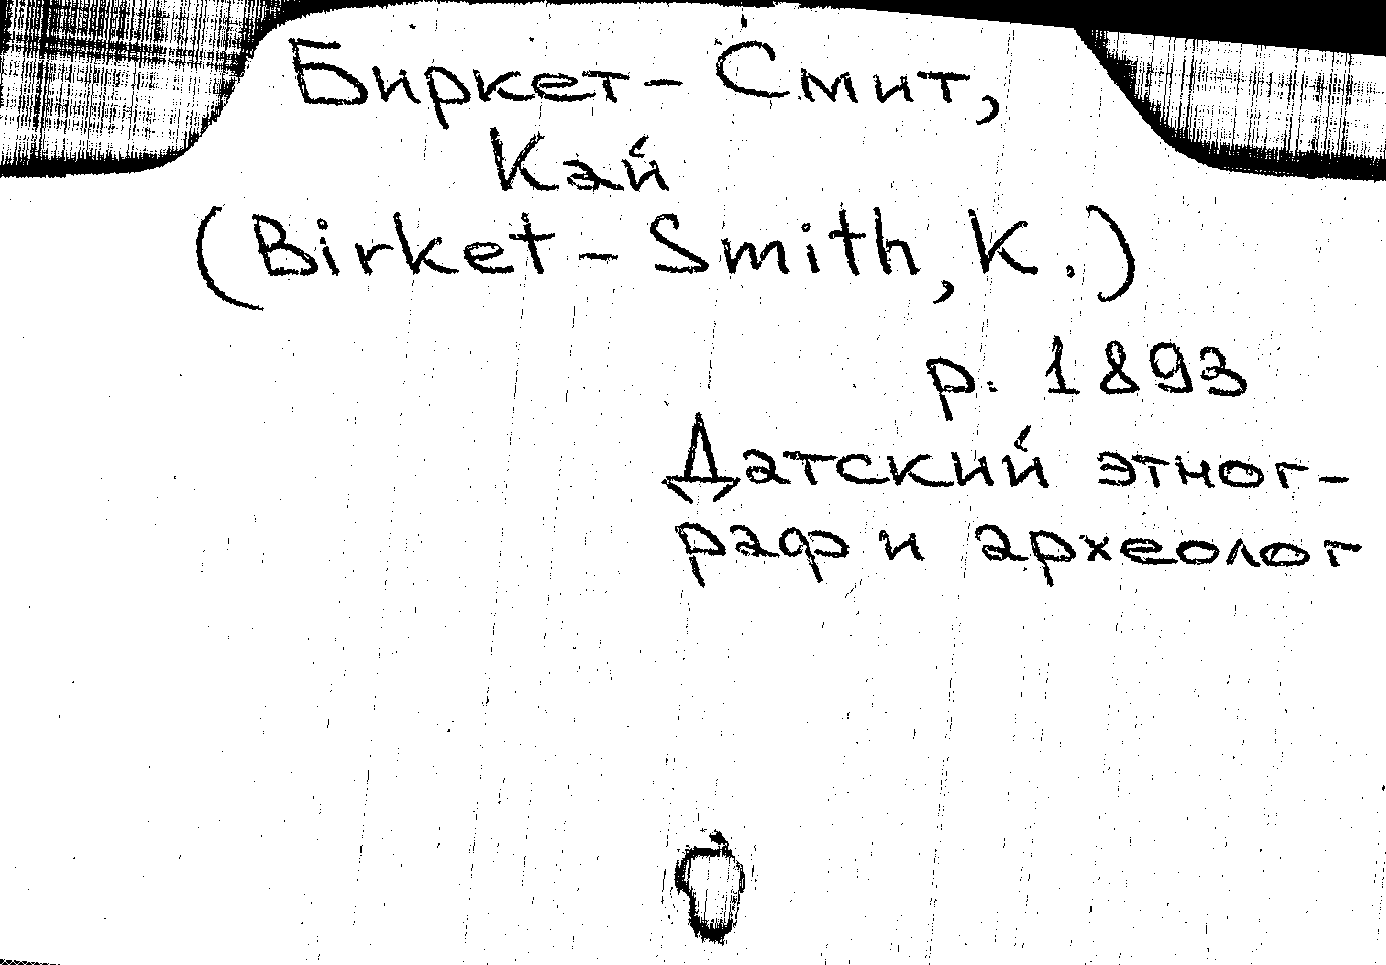 Биркет-Смит,
Кай
(Birket-Smith, K.)
р. 1893
Датский этног-
раф и археолог